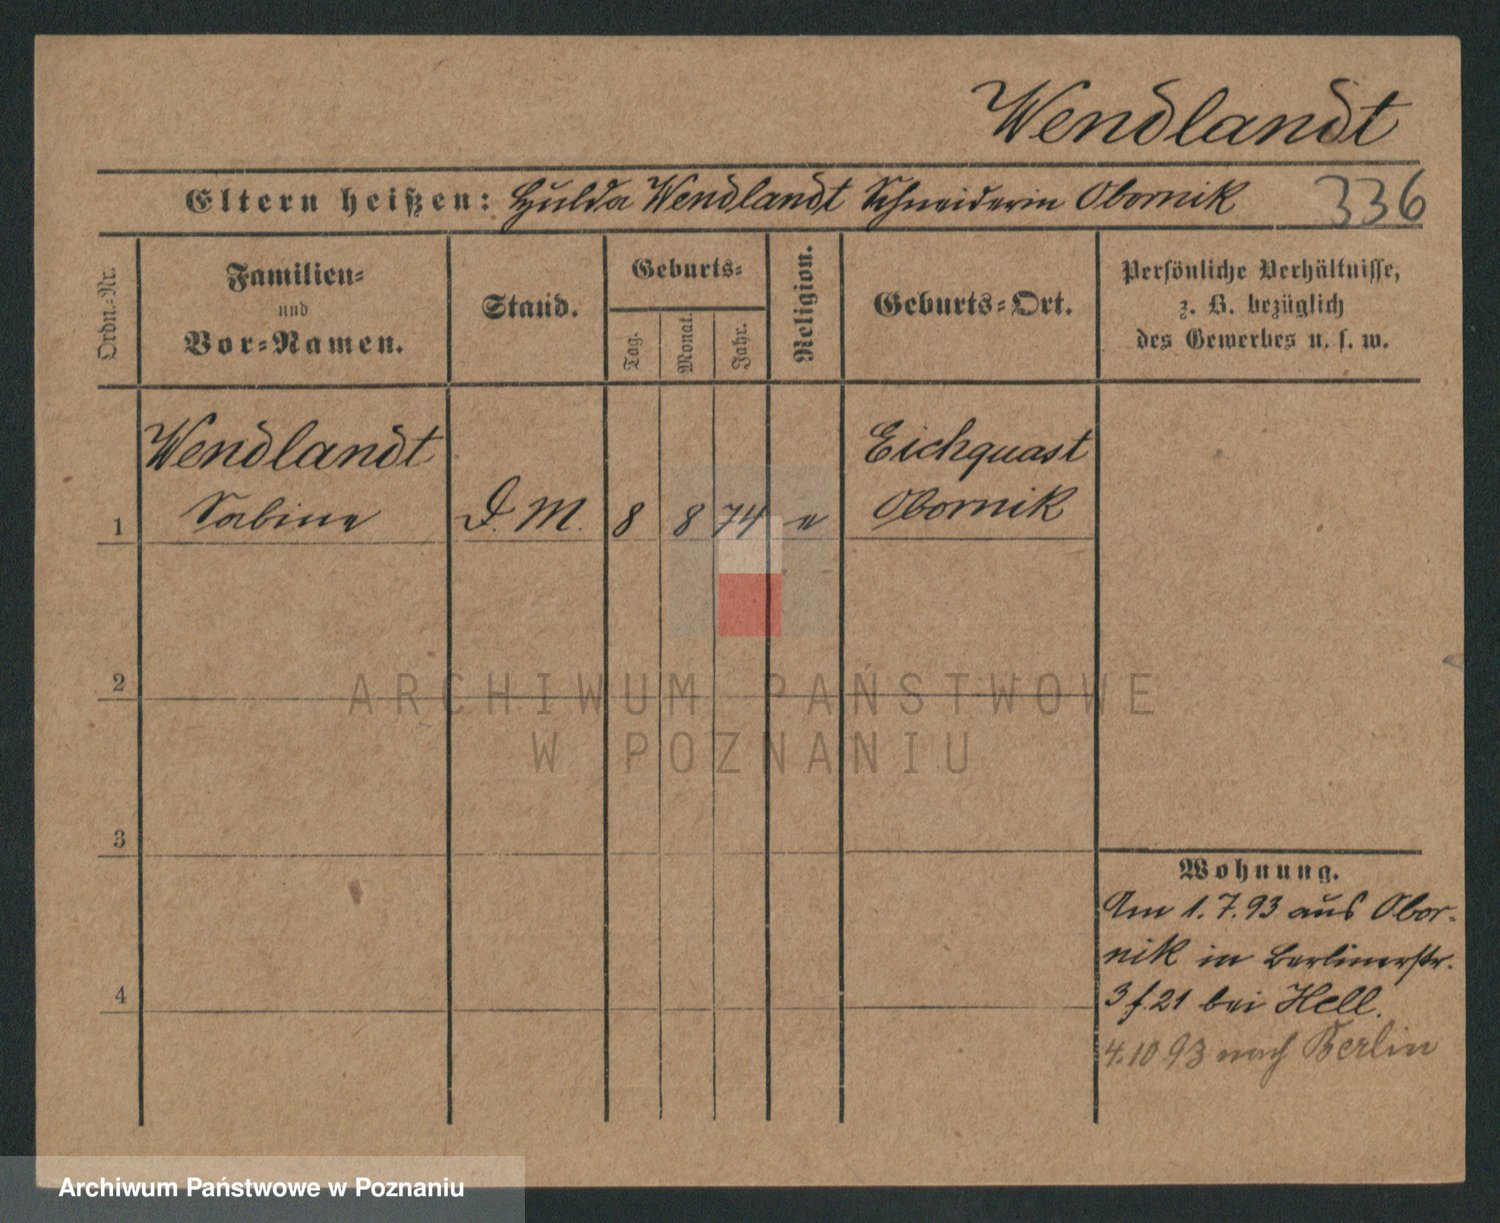 Wendlandt
Eltern heißen: Hulda Wendlandt Schneiderin Obornik 336
Ordn.-Nr.
Familien-
und
Vor-Namen.
Stand.
Geburts-
Tag.
Monat.
Jahr.
Religion.
Geburts-Ort.
Persönliche Verhältnisse,
z. B. bezüglich
des Gewerbes u. s. w.
Wendlandt Eichquast
1 Sabine D. M. 8 8 74 e Obornik
2
ARCHIWUM PAŃSTWOWE
W POZNANIU
3
Wohnung.
Am 1.7.93 aus Obor-
nik in Berlinerstr.
4
3 f. 21 bei Hell.
4.10 93 nach Berlin
Archiwum Państwowe w Poznaniu